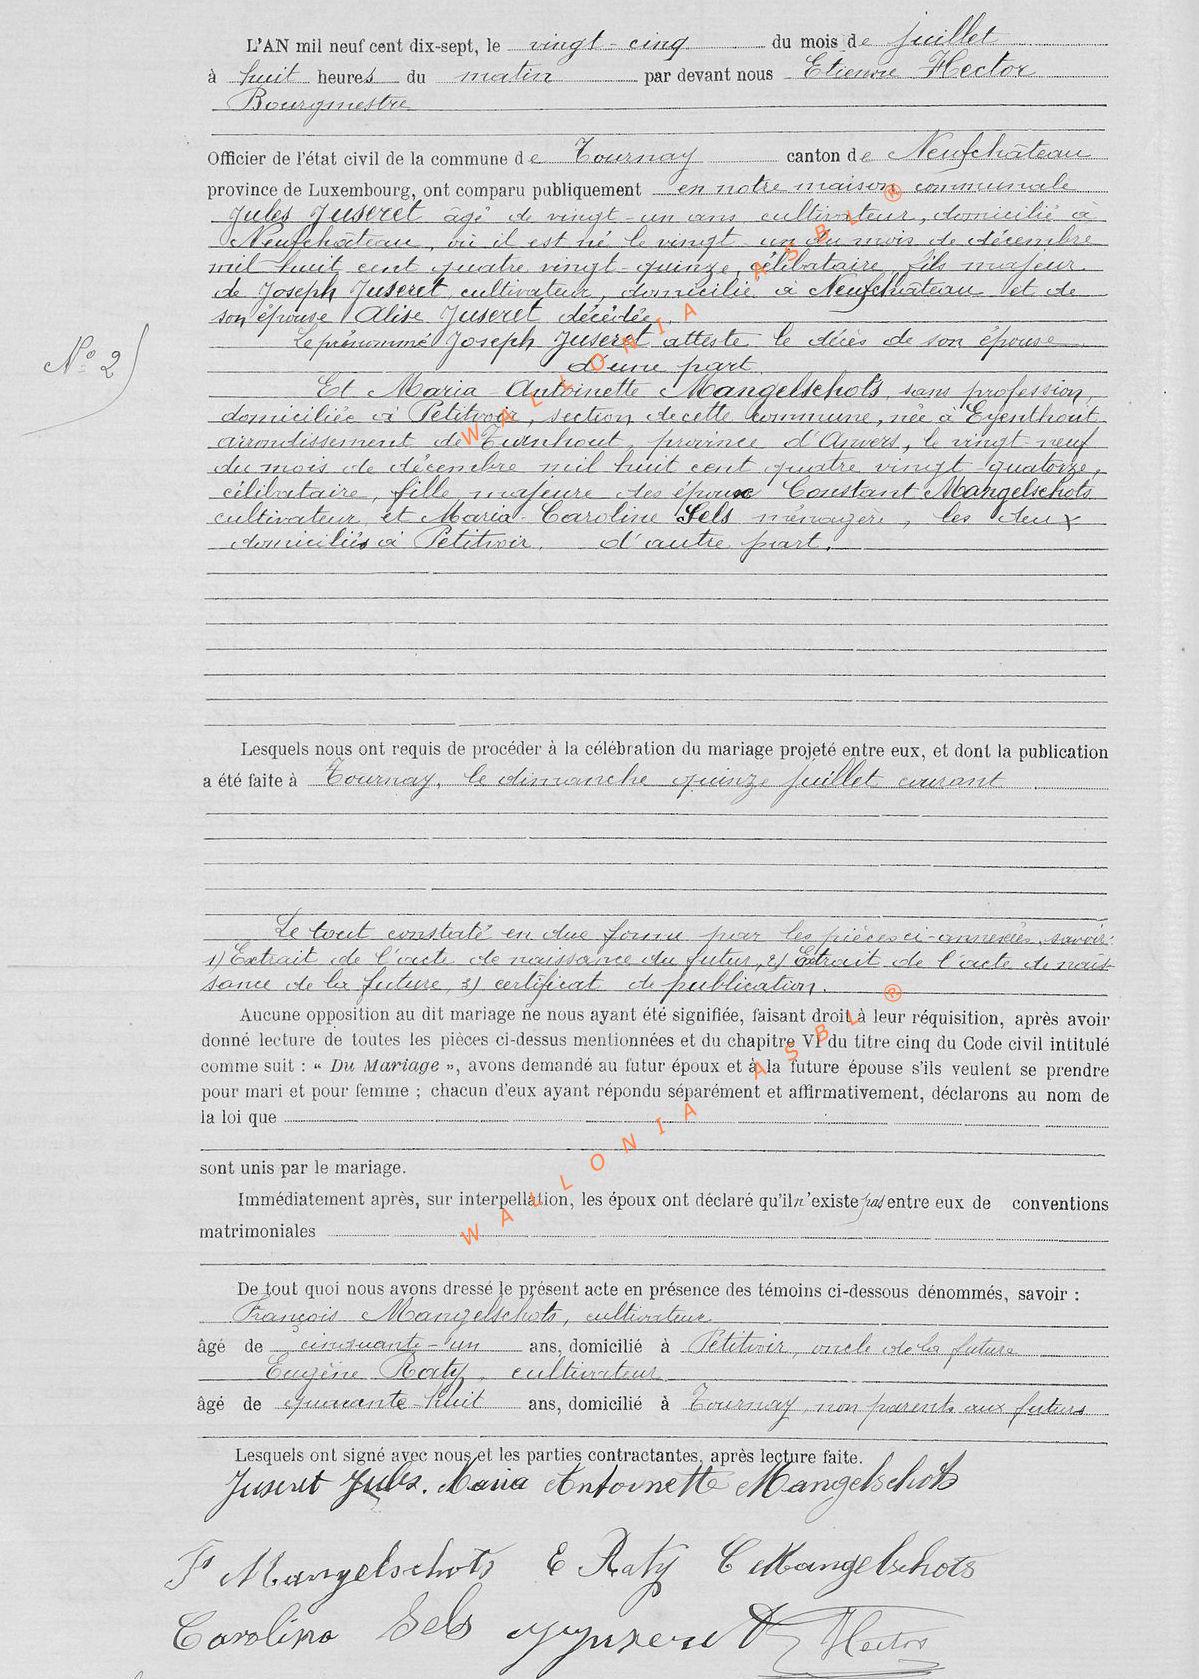 L'AN mil neuf cent dix-sept, le vingt-cinq du mois de juillet
à huit heures du matin par devant nous Etienne Hector
Bourgmestre
Officier de l'état civil de la commune de Tournay canton de Neufchâteau
province de Luxembourg, ont comparu publiquement en notre maison communale
Jules Juseret âgé de vingt-un ans, cultivateur, domicilié à
Neufchâteau, où il est né le vingt-un du mois de décembre
mil huit cent quatre vingt-quinze, célibataire, fils majeur
de Joseph Juseret cultivateur, domicilié à Neufchâteau et de
son épouse Alise Juseret décédée.
Le prénommé Joseph Juseret atteste le décès de son épouse
d'une part.
N° 2)
Et Maria Antoinette Mangelschots, sans profession,
domiciliée à Petitvoir, section de cette commune, née à Eyenthout
arrondissement de Turnhout, province d'Anvers, le vingt-neuf
du mois de décembre mil huit cent quatre vingt-quatorze,
célibataire, fille majeure des époux Constant Mangelschots
cultivateur et Maria-Caroline Sels ménagère, les deux
domiciliés à Petitvoir. d'autre part.
Lesquels nous ont requis de procéder à la célébration du mariage projeté entre eux, et dont la publication
a été faite à Tournay, le dimanche quinze juillet courant
Le tout constaté en due forme par les pièces ci-annexées savoir:
1) Extrait de l'acte de naissance du futur, 2) Extrait de l'acte de nais-
sance de la future, 3) certificat de publication.
Aucune opposition au dit mariage ne nous ayant été signifiée, faisant droit à leur réquisition, après avoir
donné lecture de toutes les pièces ci-dessus mentionnées et du chapitre VI du titre cinq du Code civil intitulé
comme suit : « Du Mariage », avons demandé au futur époux et à la future épouse s'ils veulent se prendre
pour mari et pour femme ; chacun d'eux ayant répondu séparément et affirmativement, déclarons au nom de
la loi que
sont unis par le mariage.
Immédiatement après, sur interpellation, les époux ont déclaré qu'il n'existe pas entre eux de conventions
matrimoniales
De tout quoi nous avons dressé le présent acte en présence des témoins ci-dessous dénommés, savoir :
François Mangelschots, cultivateur
âgé de cinquante-un ans, domicilié à Petitvoir, oncle de la future
Eugène Raty, cultivateur
âgé de quarante-huit ans, domicilié à Tournay, non parents aux futurs
Lesquels ont signé avec nous et les parties contractantes, après lecture faite.
Juseret Jules. Maria Antoinette Mangelschots
Fs Mangelschots E Raty C Mangelschots
Carolina Sels Juseret Hector
WALLONIA ASBL ®
WALLONIA ASBL ®